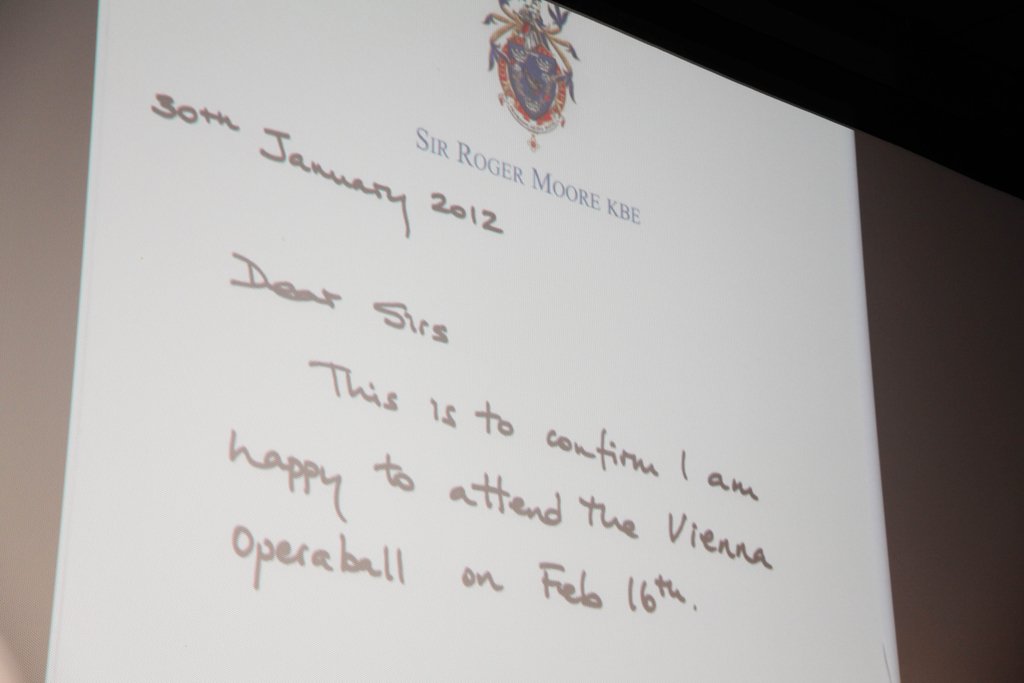 SIR ROGER MOORE KBE
30TH January 2012
Dear Sirs
This is to confirm I am
happy to attend the Vienna
Operaball on Feb 16th.